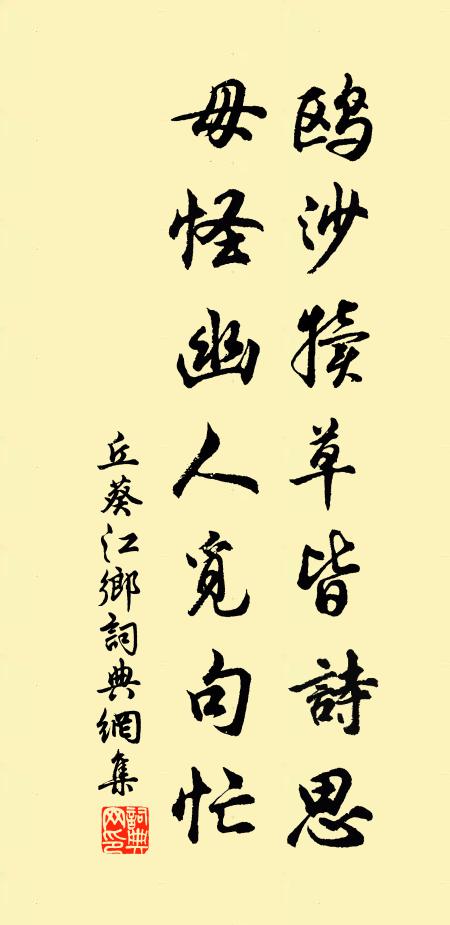 鸥沙犢草皆詩思
毋怪幽人覓句忙
丘葵江鄉詞典網集
詞典
网印